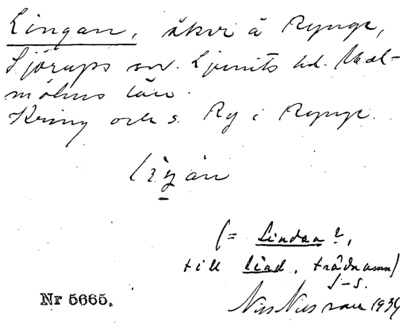 Lingan, åker å Rynge,
Sjörups sn. Ljunits hd. Mal-
möhus län.
Kring och s. Ry i Rynge.
(= Lindan?,
till lind, trädnamn)
J-s.
Nr 5665.
Nils Nilsson 1934